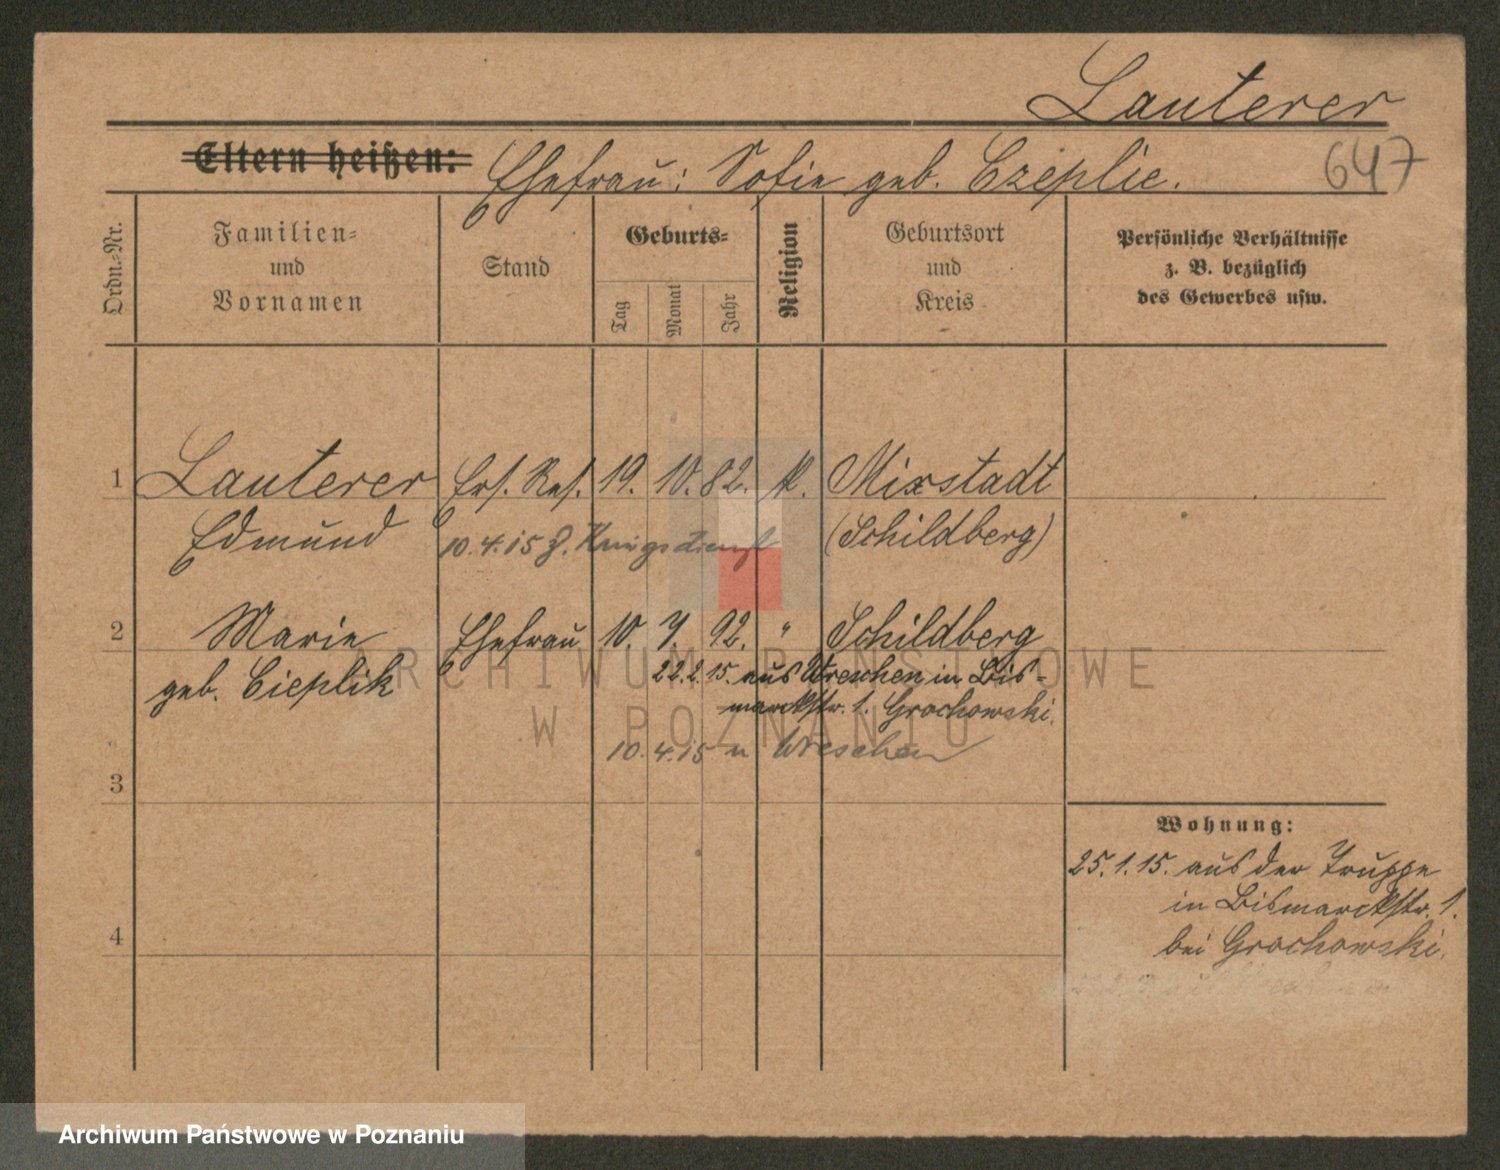 Lauterer
Eltern heißen: Ehefrau: Sofie geb. Czeplie.
647
Ordn.-Nr.
Familien-
und
Vornamen
Stand
Geburts-
Tag
Monat
Jahr
Religion
Geburtsort
und
Kreis
Persönliche Verhältnisse
z. B. bezüglich
des Gewerbes usw.
1 Lauterer Ers. Res. 19. 10. 82. k. Mixstadt
Edmund 10.4.15 z. Kriegsdienst (Schildberg)
2 Marie Ehefrau 10. 7. 92. " Schildberg
geb. Cieplik 22.2.15. aus Wreschen in Bis-
marckstr. 1. Grochowski.
10.4.15 n Wreschen
3
Wohnung:
25.1.15. aus der Truppe
in Bismarckstr. 1.
4
bei Grochowski.
ARCHIWUM PAŃSTWOWE
W POZNANIU
Archiwum Państwowe w Poznaniu